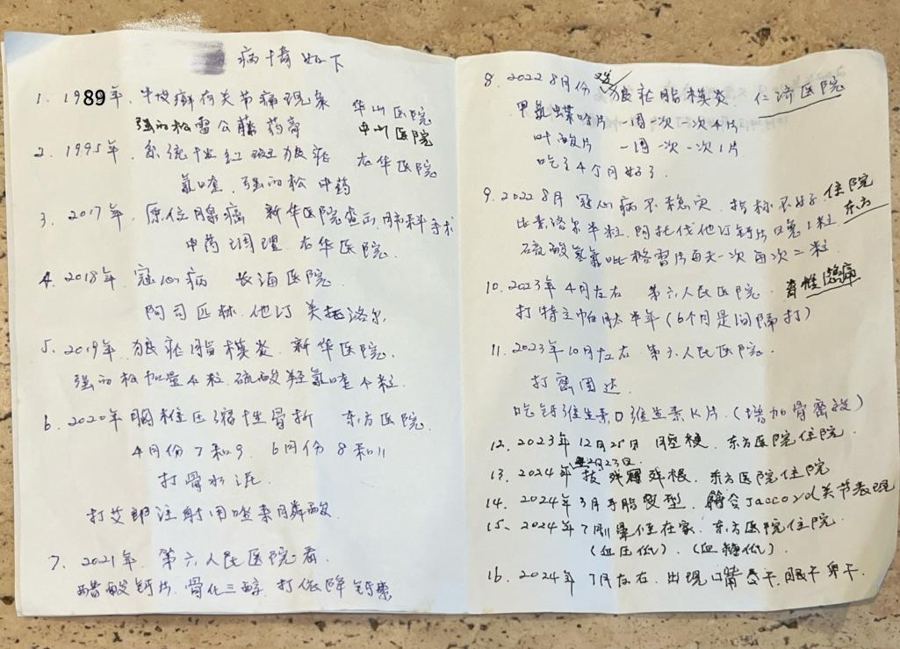 病情如下
1. 1989年. 牛皮癣有关节痛现象 华山医院
强的松雷公藤药膏 中山医院
2. 1995年. 系统性红斑狼疮 龙华医院
氯喹. 强的松 中药
3. 2017年. 原位腺癌 新华医院查出, 肺科手术
中药调理 龙华医院.
4. 2018年 冠心病 长海医院.
阿司匹林. 他汀 美托洛尔.
5. 2019年. 狼疮脂膜炎. 新华医院.
强的松加量4粒. 硫酸羟氯喹4粒.
6. 2020年 胸椎压缩性骨折 东方医院.
4月份7和9. 6月份8和11
打骨水泥
打艾郎注射用唑来膦酸
7. 2021年. 第六人民医院看.
醋酸钙片. 骨化三醇. 打依降钙素
8. 2022 8月份 狼疮脂膜炎. 仁济医院
甲氨蝶呤片 一周一次一次4片
叶酸片 一周一次一次1片.
吃了4个月好了.
9. 2022 8月 冠心病不稳定. 指标不好 住院
比索洛尔半粒. 阿托伐他汀钙片 1粒 东方
硫酸氢氯吡格雷片每天一次 每次二粒
10. 2023年4月左右 第六人民医院.
打特立帕肽半年(6个月是间隔打)
11. 2023年10月左右 第六人民医院.
打密固达
吃钙维生素D维生素K片. (增加骨密度)
12. 2023年12月25日 腔梗. 东方医院住院.
13. 2024年2月23日. 拔残冠残根. 东方医院住院
14. 2024年3月手脂变型. 符合Jaccoud关节表现
15. 2024年7月 晕住在家. 东方医院住院.
(血压低). (血糖低).
16. 2024年7月左右. 出现口干. 眼干